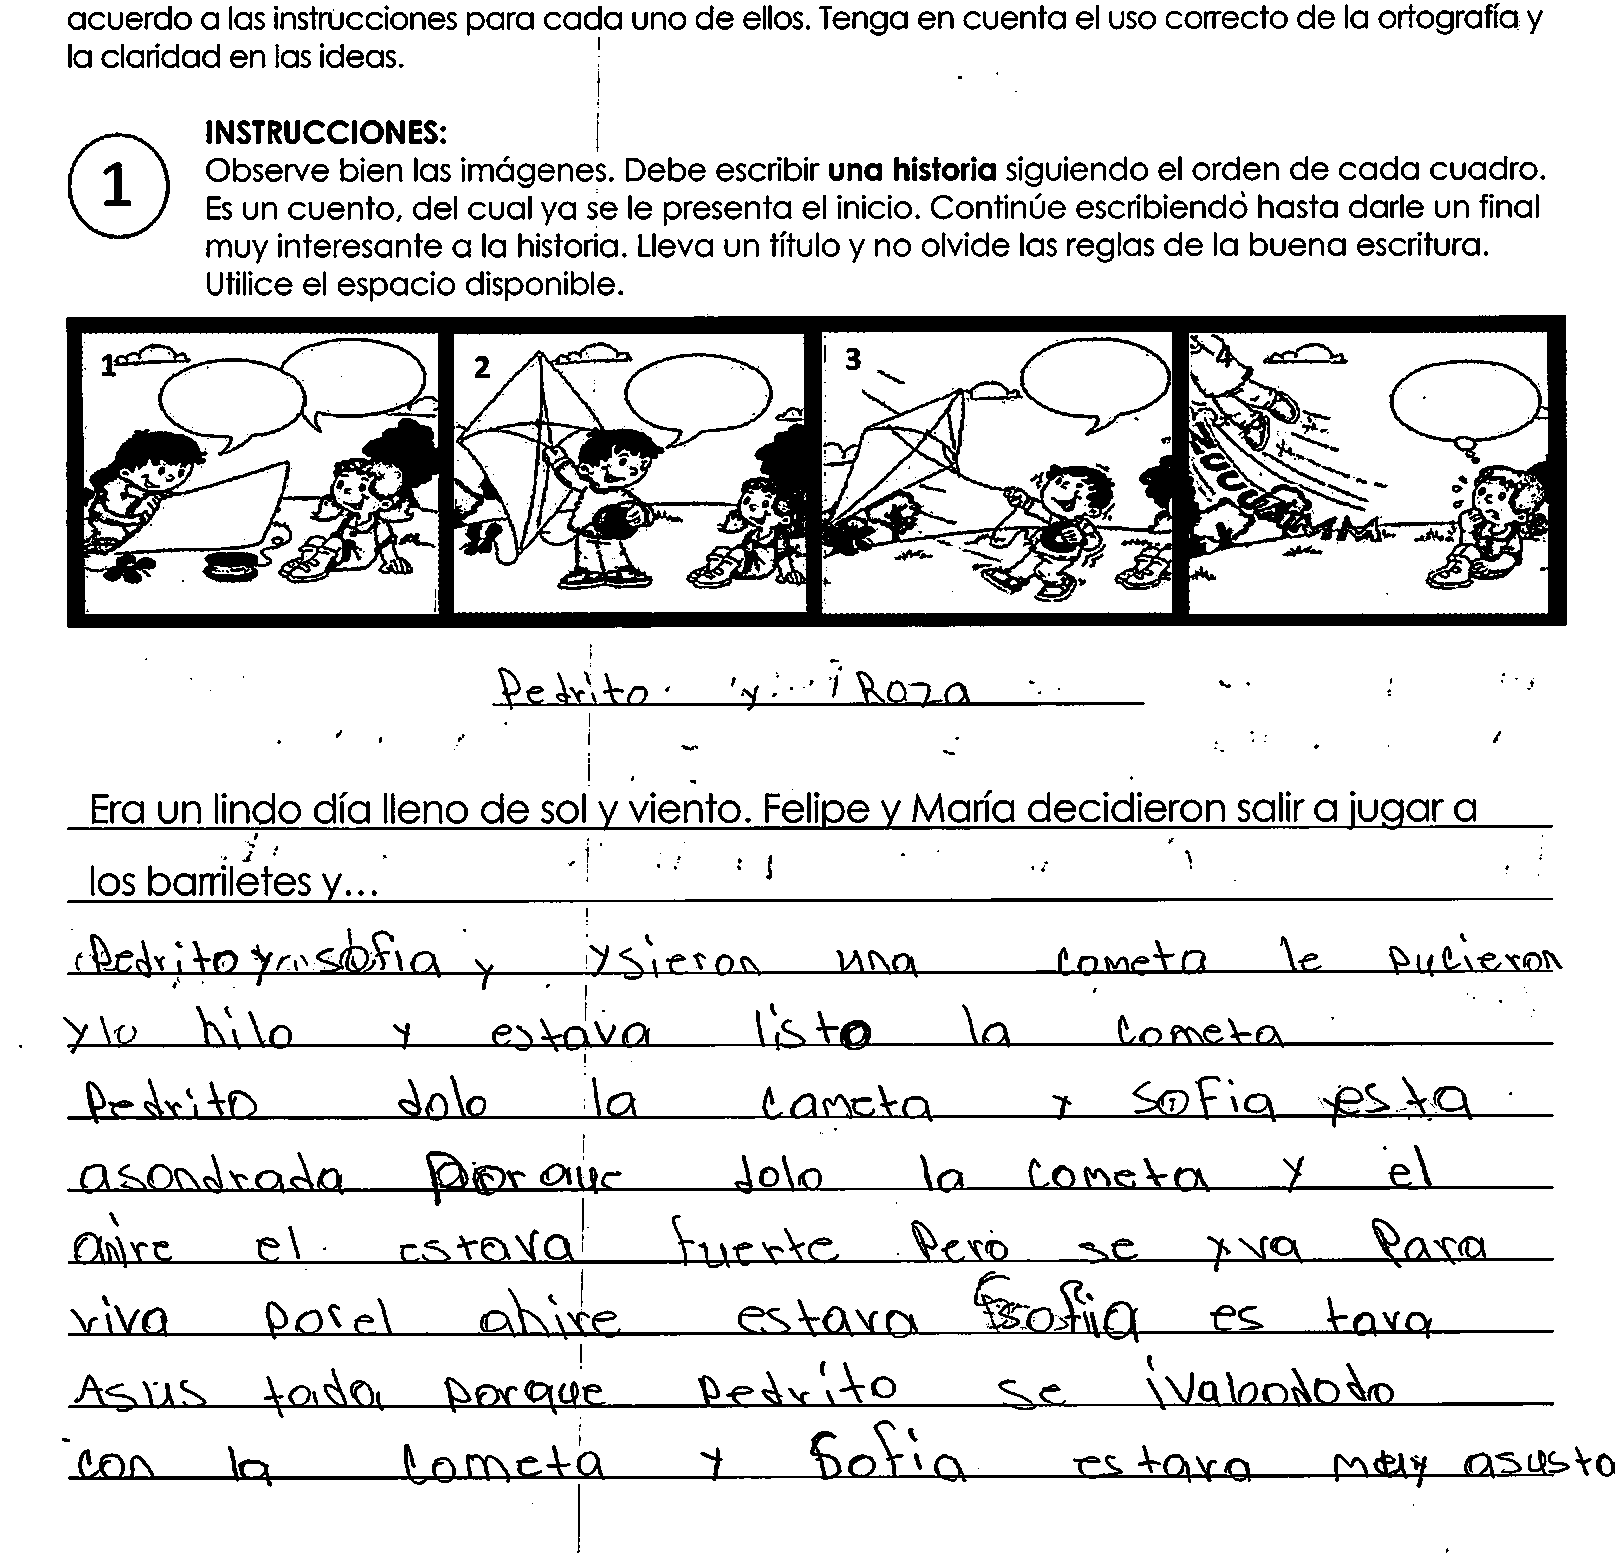 acuerdo a las instrucciones para cada uno de ellos. Tenga en cuenta el uso correcto de la ortografía y
la claridad en las ideas.
1
INSTRUCCIONES:
Observe bien las imágenes. Debe escribir una historia siguiendo el orden de cada cuadro.
Es un cuento, del cual ya se le presenta el inicio. Continúe escribiendo hasta darle un final
muy interesante a la historia. Lleva un título y no olvide las reglas de la buena escritura.
Utilice el espacio disponible.
1 2 3 4
Pedrito y Roza
Era un lindo día lleno de sol y viento. Felipe y María decidieron salir a jugar a
los barriletes y...
Pedrito y sofia y ysieron una cometa le pucieron
hilo y estava listo la cometa
Pedrito dolo la cameta y sofia esta
asondrada porque dolo la cometa y el
el estava fuerte Pero se yva Para
viva porel ahire estava sofia es tava
Asus tada porque Pedrito se
con la cometa y Sofia estava muy asusto